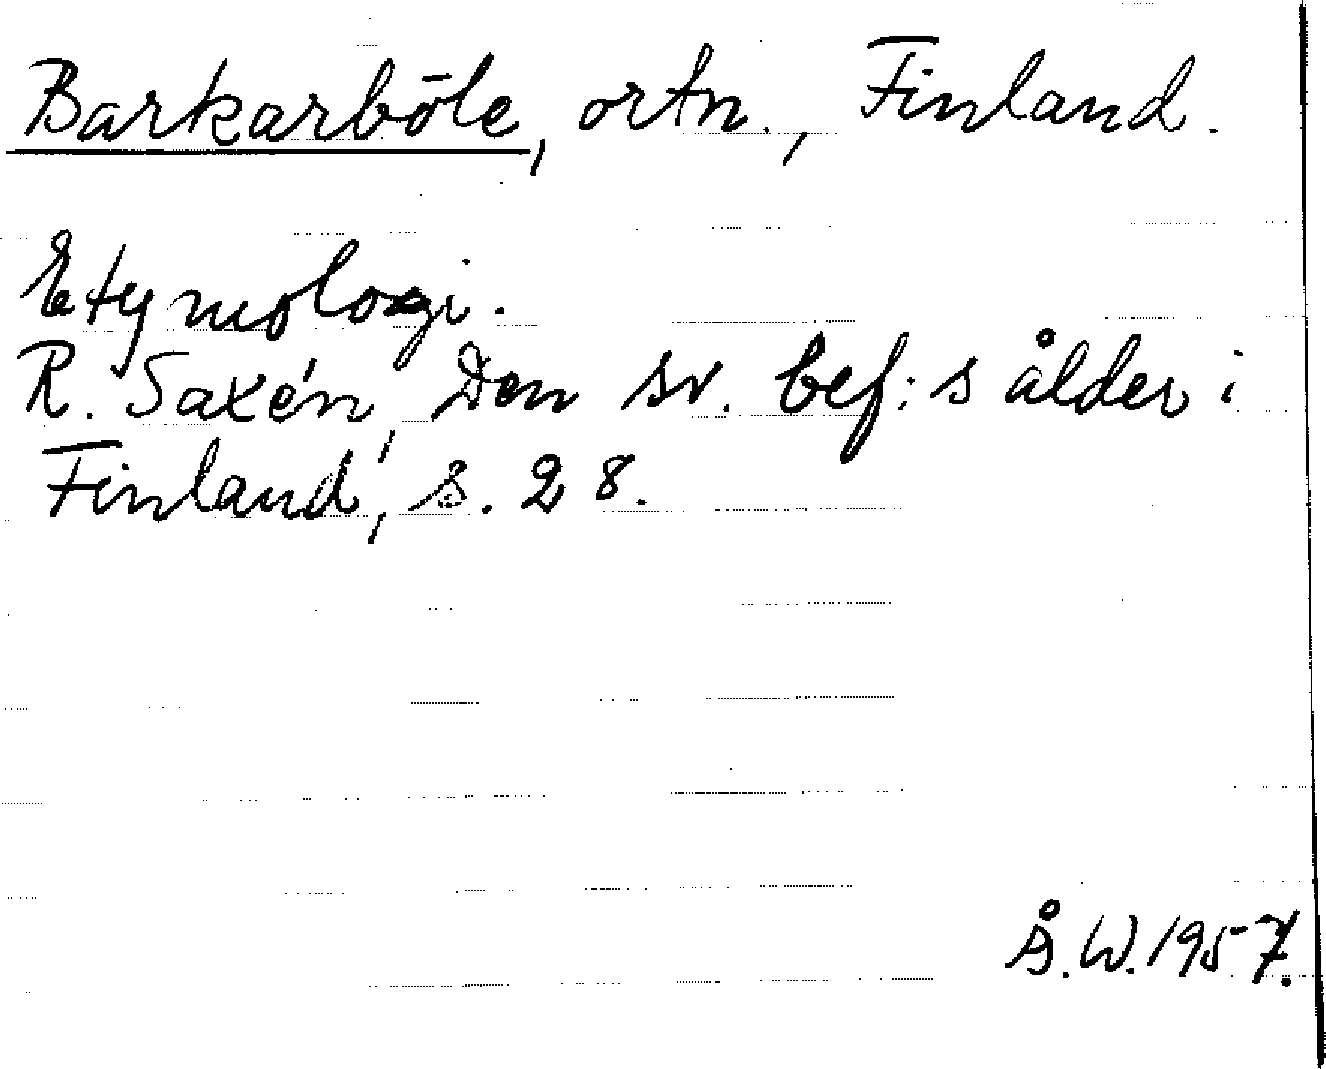 Barkarböle, ortn., Finland.
Etymologi.
R. Saxén, Den sv. bef:s ålder i
Finland, s. 28.
Å.W. 1957.